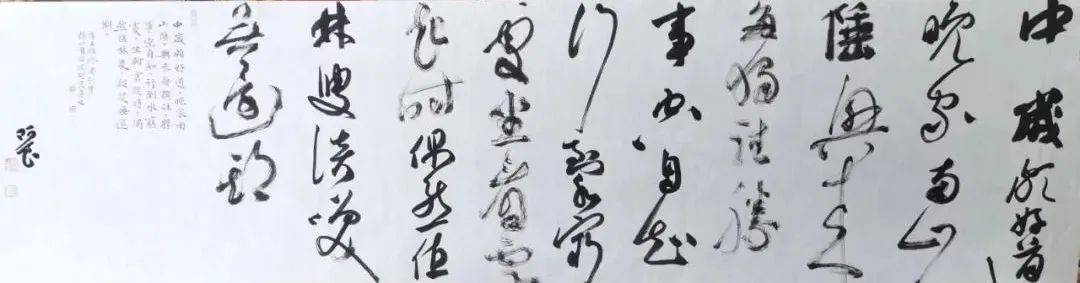 中歲頗好道
晚家南山
陲興來
每獨往勝
事空自知
行到水窮
處坐看雲
起時偶然值
林叟談笑
無還期
中歲頗好道晚家南
山陲興來每獨往勝
事空自知行到水窮
處坐看雲起時偶
然值林叟談笑無還
期